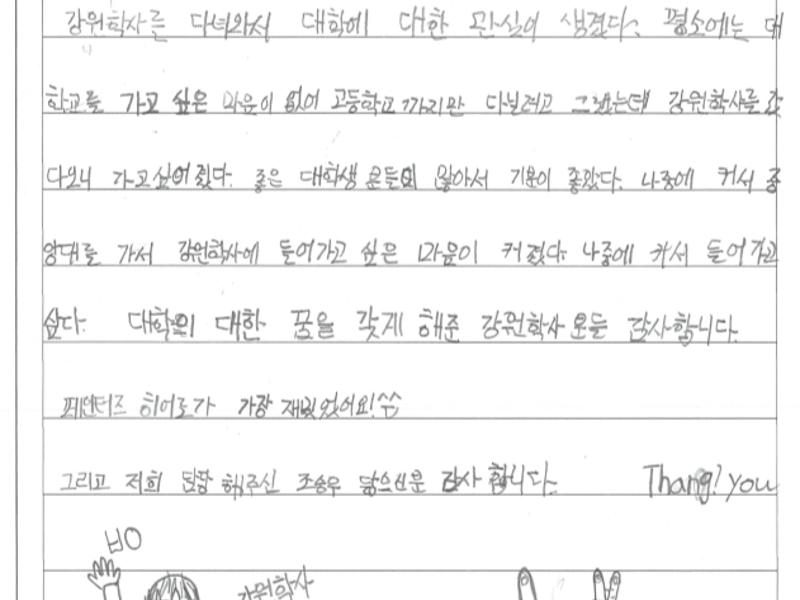 강원학사를 다녀와서 대학에 대한 관심이 생겼다. 평소에는 대
학교를 가고 싶은 마음이 없어 고등학교 까지만 다닐려고 그랬는데 강원학사를 갔
다오니 가고싶어 졌다. 좋은 대학생 분들의 많아서 기분이 좋았다. 나중에 커서 중
앙대를 가서 강원학사에 들어가고 싶은 마음이 커졌다. 나중에 커서 들어가고
싶다. 대학의 대한 꿈을 갖게 해준 강원학사 모든 감사합니다.
페인터즈 히어로가 가장 재밌었어요!^^
그리고 저희 담당 해주신 조승우 닮으신분 감사합니다. Thang! you
강원학사